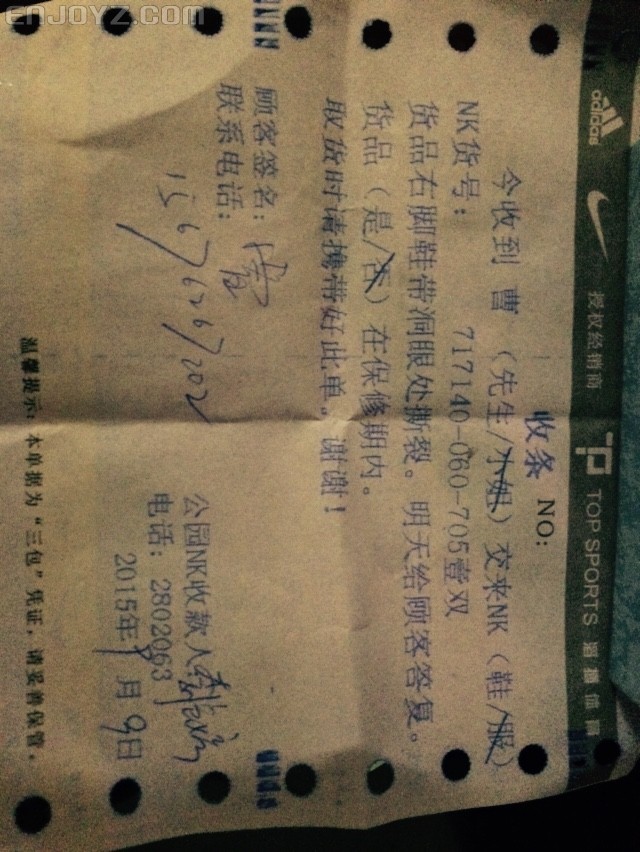 ENJOYZ.COM
adidas 授权经销商 TOP SPORTS 滔搏体育
收条 NO:
今收到 曹 (先生/小姐)交来NK(鞋/服)
NK货号: 717140-060-705壹双
货品右脚鞋带洞眼处撕裂。明天给顾客答复。
货品(是/否)在保修期内。
取货时请携带好此单。谢谢!
顾客签名:曹
联系电话:15676267202
公园NK收款人
电话:2802063
2015年 月9日
温馨提示:本单据为“三包”凭证,请妥善保管。